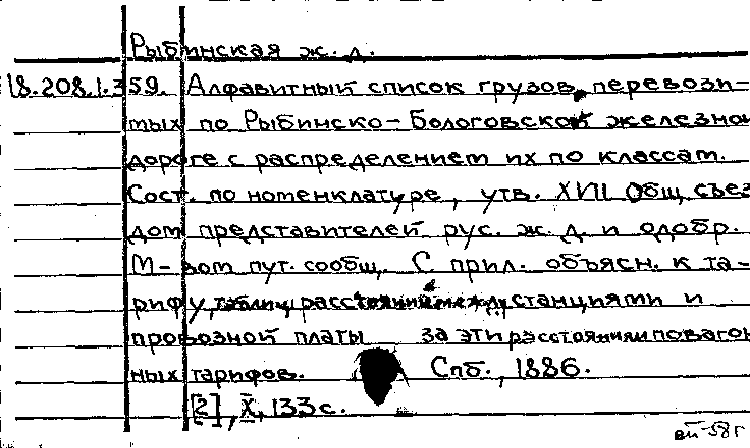 Рыбинская ж. д.
18.208.1.359. Алфавитный список грузов, перевози-
мых по Рыбинско-Бологовской железной
дороге с распределением их по классам.
Сост. по номенклатуре, утв. XVII Общ. съез
дом представителей рус. ж. д. и одобр.
М-вом пут. сообщ. С прил. объясн. к та-
рифу, таблиц расстояний между станциями и
провозной платы за эти расстояния повагон
ных тарифов. Спб., 1886.
[2], X, 133 с.